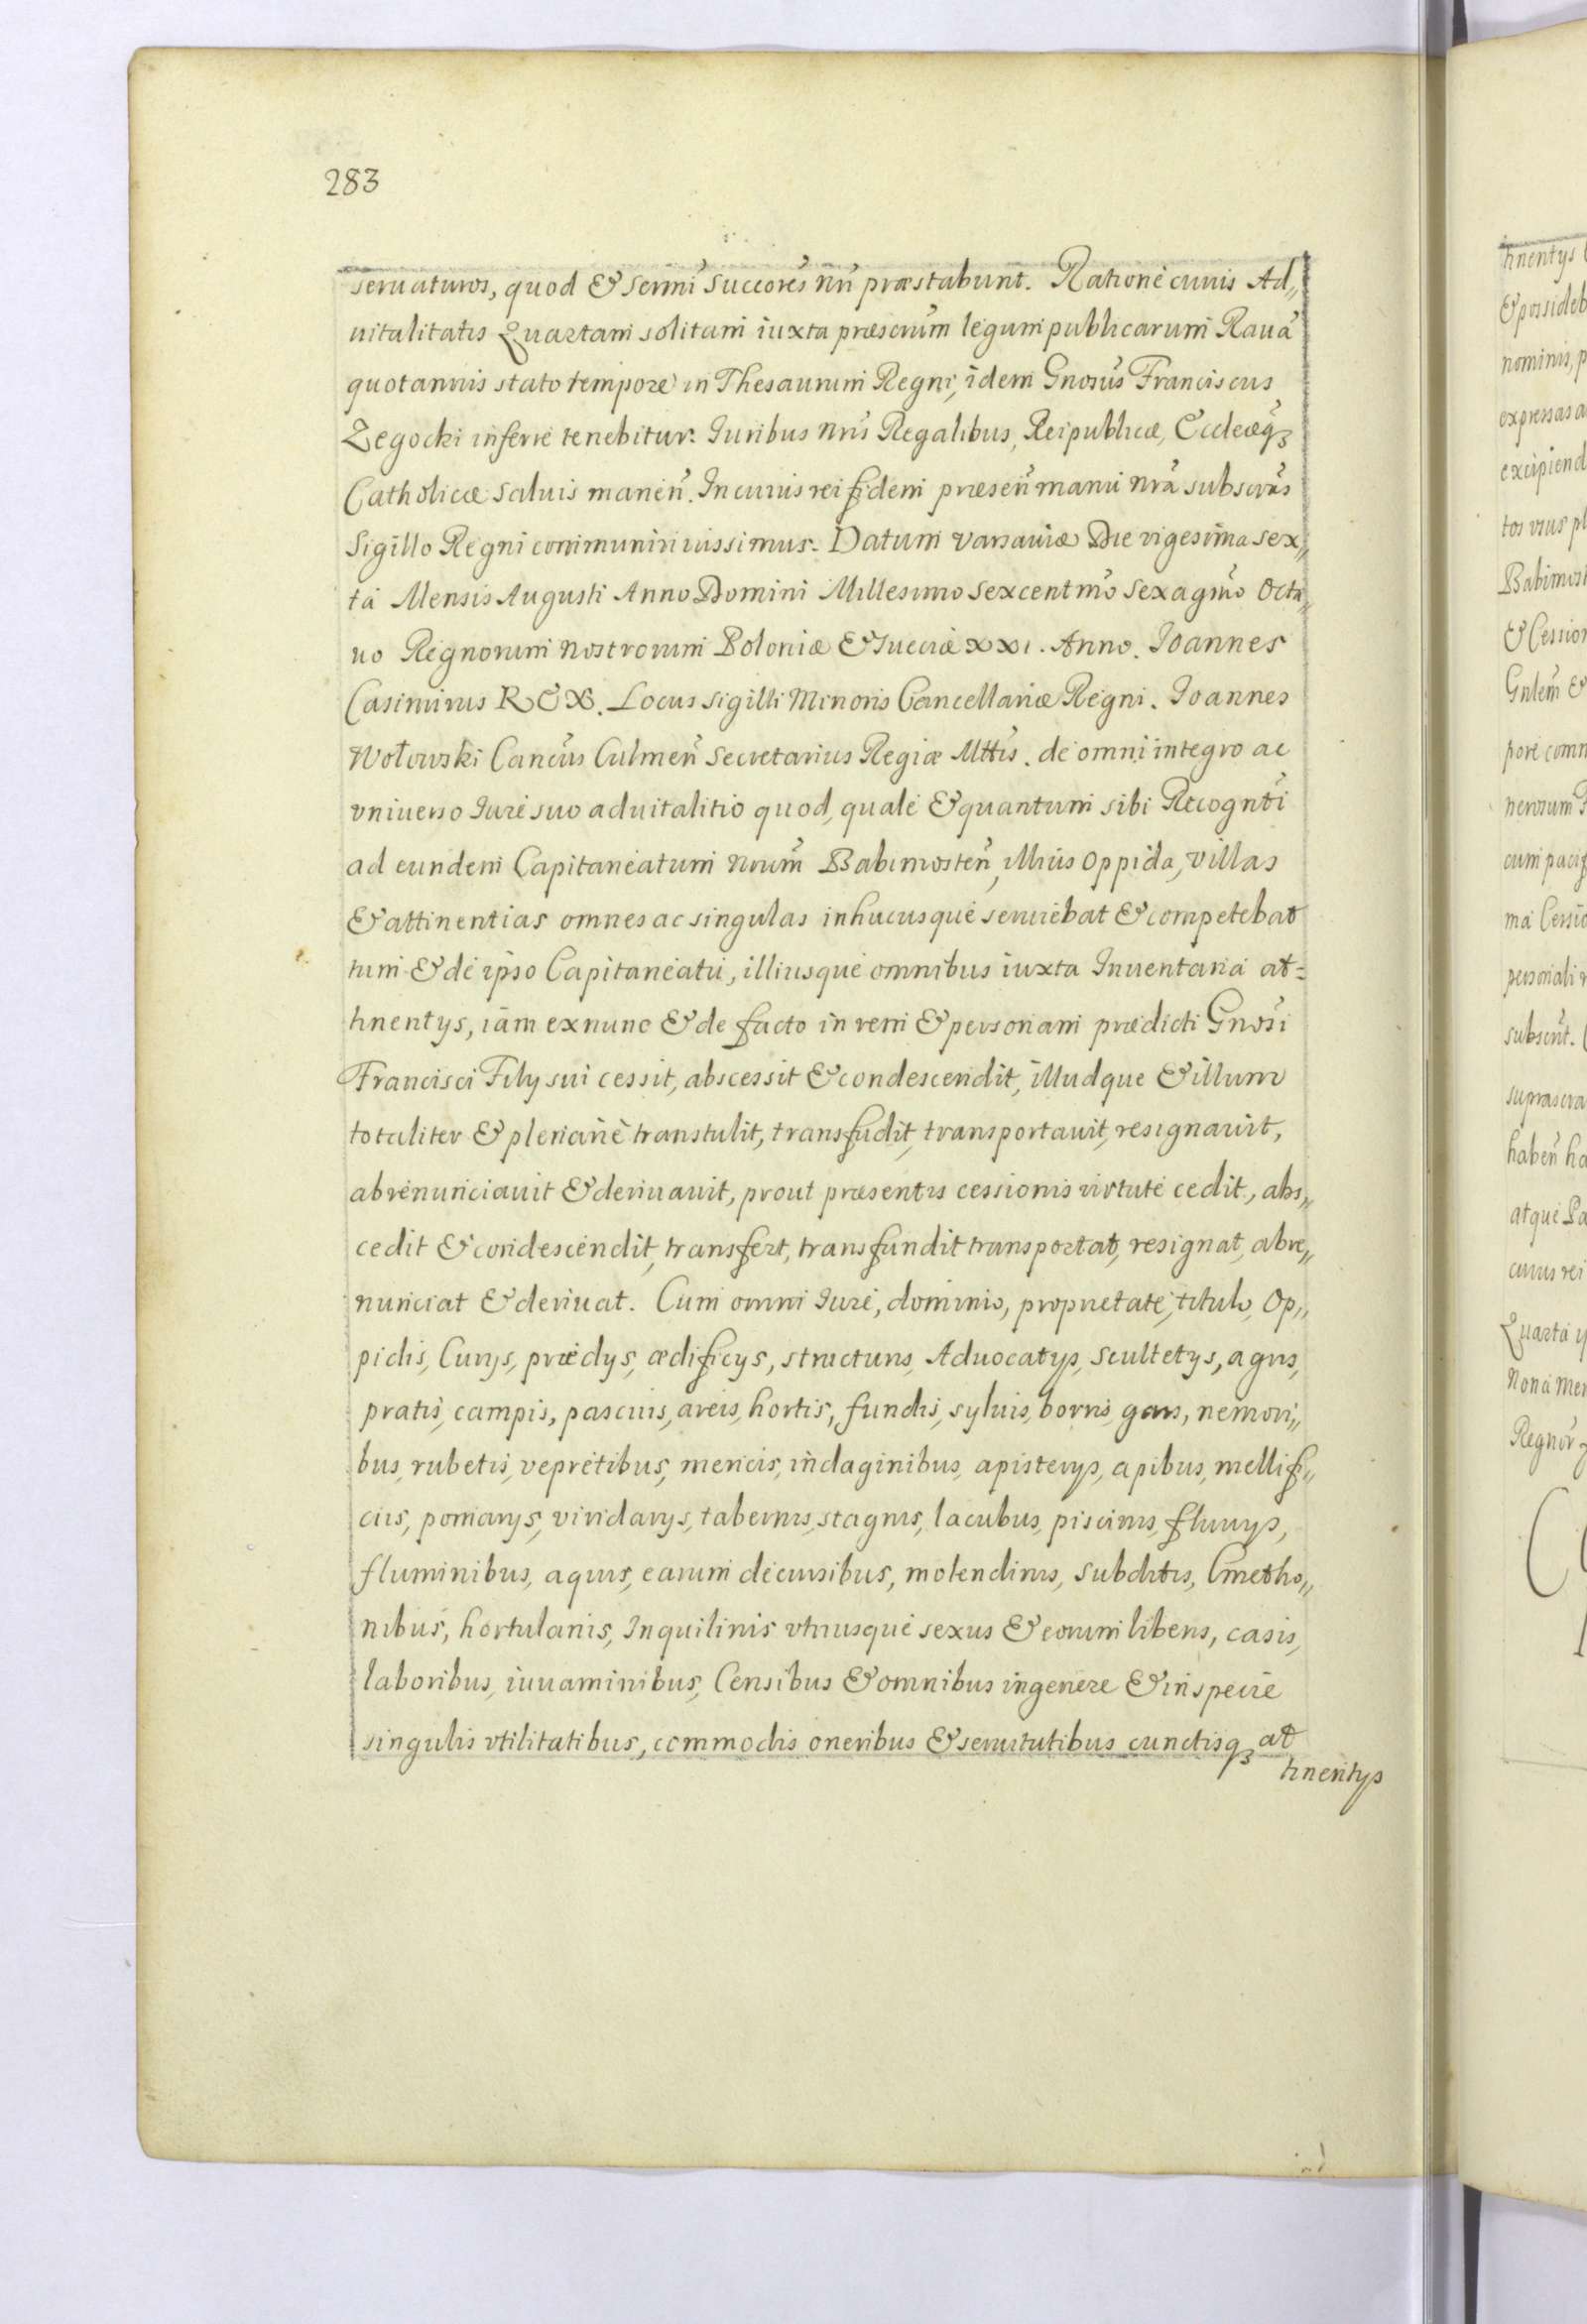 283
seruaturos, quod & sermi succores nri præstabunt. Ratione cuius Ad„
uitalitatis Quartam solitam iuxta præscrum legum publicarum Rauã
quotannis stato tempore in Thesaurum Regni, idem Gnosus Franciscus
Zegocki inferre tenebitur. Iuribus nris Regalibus, Reipublicæ, Ecclæq3
Catholicæ saluis manen. In cuius rei fidem præsen manu nra subscras
Sigillo Regni communiri iussimus. Datum Varsauiæ Die vigesima sex„
ta Mensis Augusti Anno Domini Millesimo sexcentmo sexagmo Octa„
uo Regnorum nostrorum Poloniæ & Sueciæ XXI. Anno. Joannes
Casimirus REX. Locus sigilli Minoris Cancellariæ Regni. Joannes
Wołowski Cancus Culmen Secretarius Regiæ Mttis. de omni integro ac
vniuerso Iure suo aduitalitio quod, quale & quantum sibi Recognti
ad eundem Capitaneatum nrum Babimosten, illius oppida, villas
& attinentias omnes ac singulas inhucusque seruiebat & competebat
tum & de ipso Capitaneatu, illiusque omnibus iuxta Inuentaria at=
tinentys, iam exnunc & de facto in rem & personam prædicti Gnosi
Francisci Filij sui cessit, abscessit & condescendit, illudque & illum
totaliter & plenarie transtulit, transfudit, transportauit, resignauit,
abrenunciauit & deriuauit, prout præsentis cessionis virtute cedit, abs„
cedit & condescendit, transfert, transfundit transportat, resignat, abre„
nunciat & deriuat. Cum omni Iure, dominio, proprietate, titulo, Op„
pidis, Curijs, prædys, ædificys, structuris, Aduocatys, scultetys, agris,
pratis, campis, pascuis, areis, hortis, fundis, syluis, borris, gais, nemori„
bus, rubetis, vepretibus, mericis, indaginibus, apisterys, apibus, mellifi„
ciis, pomarys, viridarys, tabernis, stagnis, lacubus, piscinis, fluuys,
fluminibus, aquis, earum decursibus, molendinis, subditis, Cmetho„
nibus, hortulanis, Inquilinis vtriusque sexus & eorum liberis, casis,
laboribus, iuuaminibus, Censibus & omnibus in genere & in specie
singulis vtilitatibus, commodis oneribus & seruitutibus cunctisq3 at
tinentys